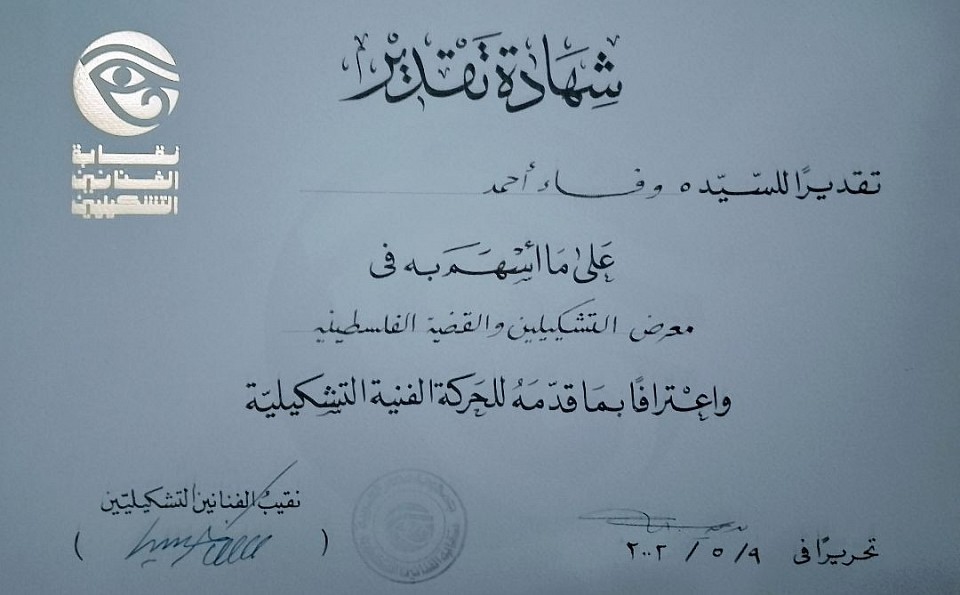 شَهَادَة تَقْدِيْر
نقابة
الفنانين
التشكيليين
تقديرًا للسّيّده وفاء أحمد
عَلىٰ مَا أسْهَمَ به فى
معرض التشكيليين والقضية الفلسطينيه
واعْترافًا بمَا قدّمَهُ للحَركة الفنية التشكيليّة
نقيبُ الفنانين التشكيليّين
( )
تحريرًا فى ٩ / ٥ / ٢٠٠٢